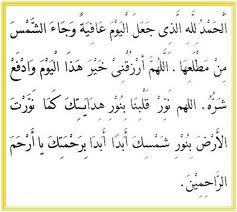 اَلْحَمْدُ لِلّٰهِ الَّذِى جَعَلَ الْيَوْمَ عَافِيَةً وَجَاءَ الشَّمْسَ
مِنْ مَطْلَعِهَا . اَللّٰهُمَّ اَرْزُقْنِى خَيْرَ هَذَا الْيَوْمَ وَادْفَعْ
شَرَّهُ. اللهم نَوِّرْ قَلْبَنَا بِنُورِ هِدَايَتِكَ كَمَا نَوَّرْتَ
الْأَرْضَ بِنُورِ شَمْسِكَ أَبَدًا أَبَدًا بِرَحْمَتِكَ يَا أَرْحَمَ
الرَّاحِمِيْنَ.